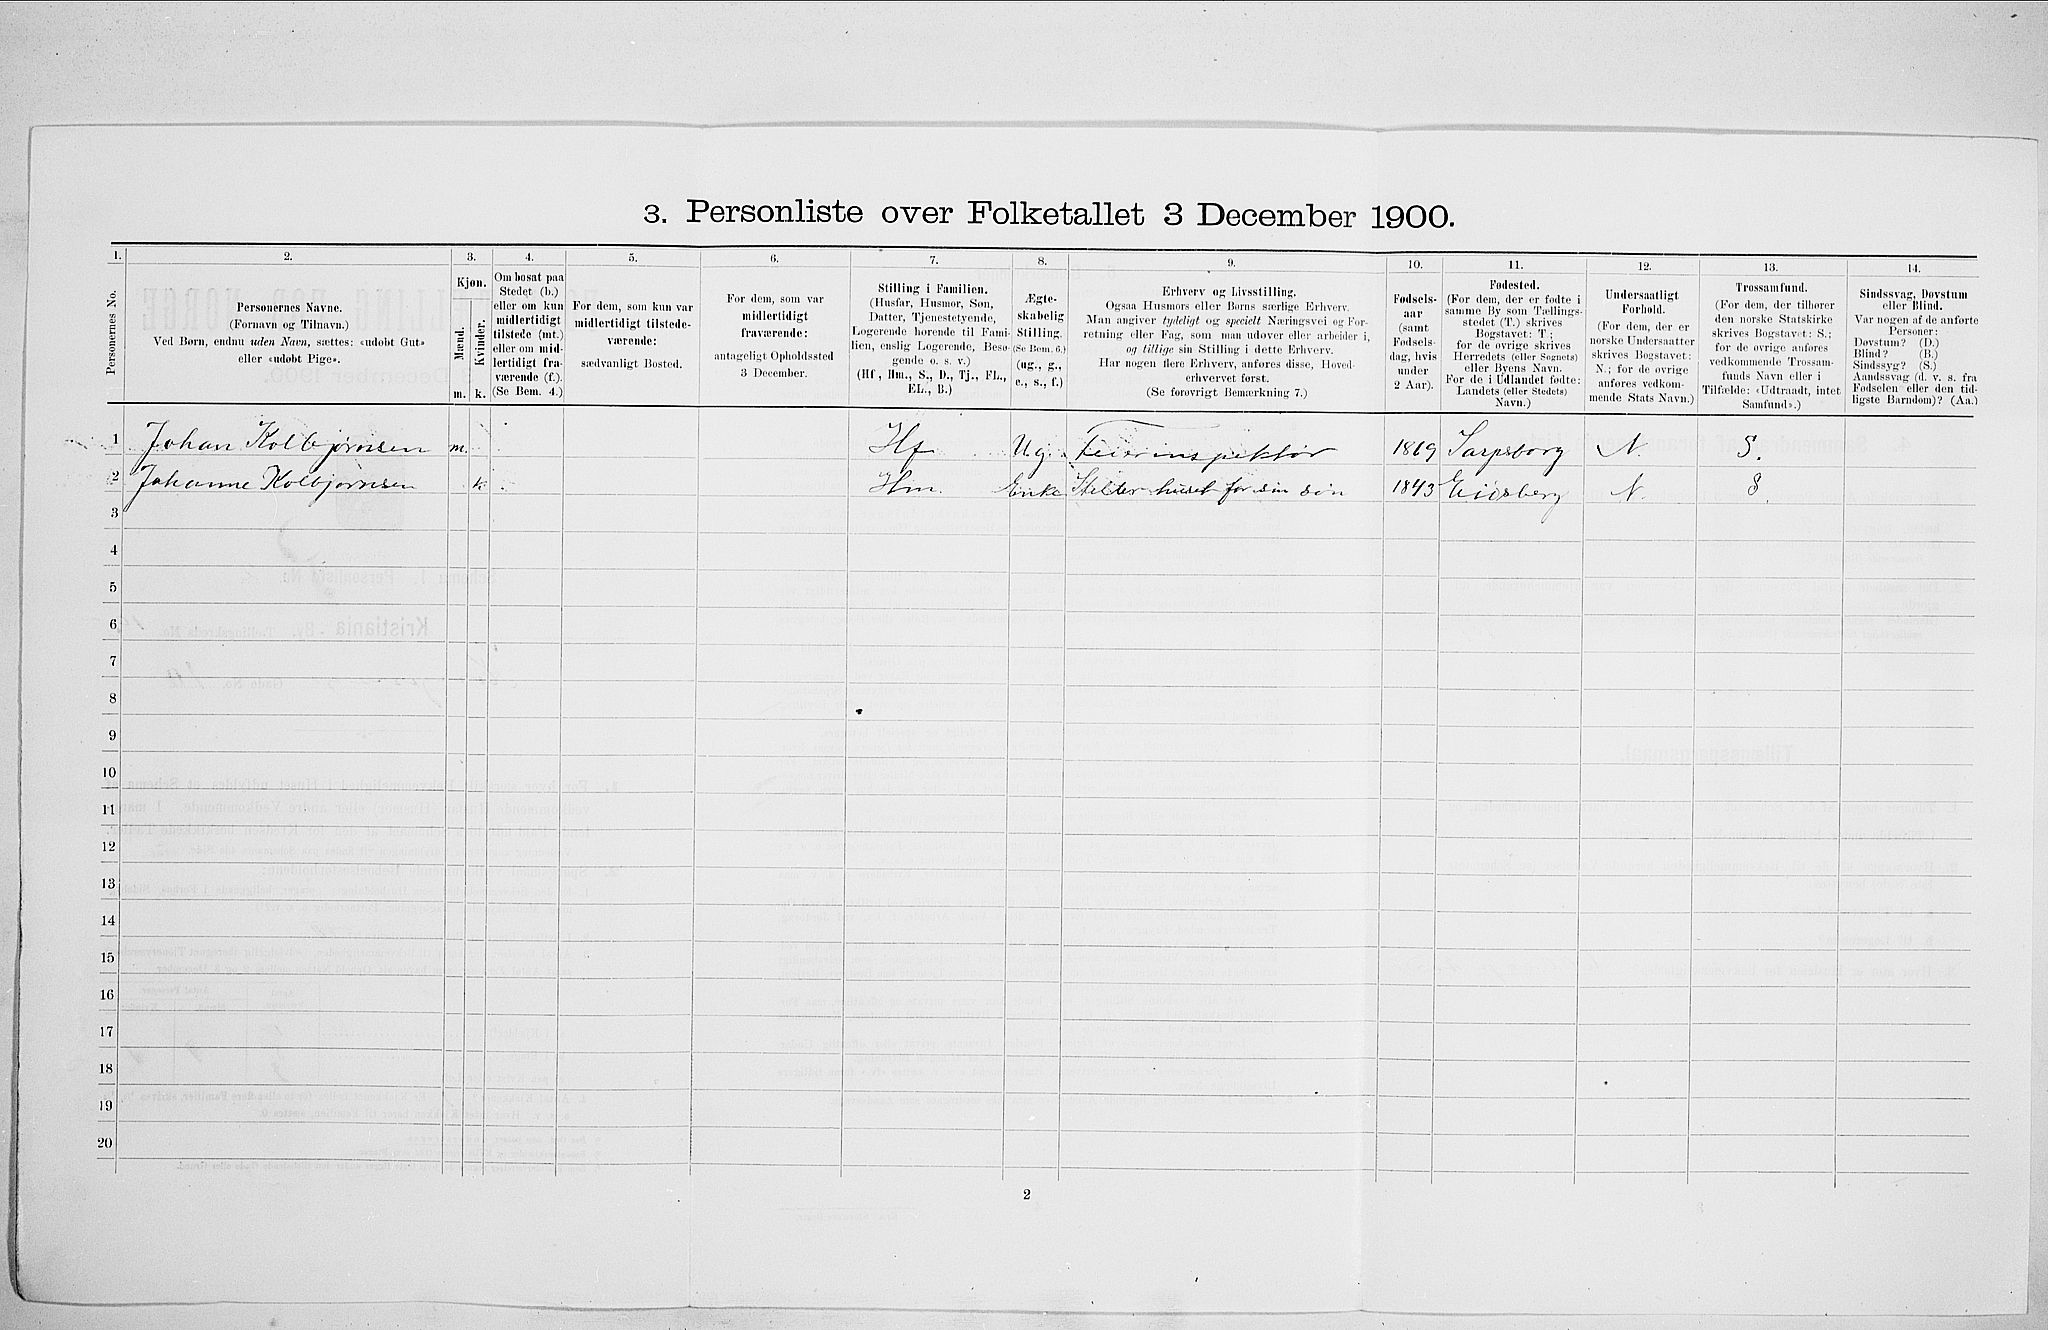 3. Personliste over Folketallet 3 December 1900.
1. 2. 3. 4. 5. 6. 7. 8. 9. 10. 11. 12. 13. 14.
Personernes No.
Personernes Navne.
(Fornavn og Tilnavn.)
Ved Børn, endnu uden Navn, sættes: «udøbt Gut»
eller «udøbt Pige».
Kjøn.
Mænd.
Kvinder.
m. k.
Om bosat paa
Stedet (b.)
eller om kun
midlertidigt
tilstede (mt.)
eller om mid-
lertidigt fra-
værende (f.).
(Se Bem. 4.)
For dem, som kun var
midlertidigt tilstede-
værende:
sædvanligt Bosted.
For dem, som var
midlertidigt
fraværende:
antageligt Opholdssted
3 December.
Stilling i Familien.
(Husfar, Husmor, Søn,
Datter, Tjenestetyende,
Logerende hørende til Fami-
lien, enslig Logerende, Besø-
gende o. s. v.)
(Hf., Hm., S., D., Tj., FL.,
EL., B.)
Ægte-
skabelig
Stilling.
(Se Bem. 6.)
(ug., g.,
e., s., f.)
Erhverv og Livsstilling.
Ogsaa Husmors eller Børns særlige Erhverv.
Man angiver tydeligt og specielt Næringsvei og For-
retning eller Fag, som man udøver eller arbeider i,
og tillige sin Stilling i dette Erhverv.
Har nogen flere Erhverv, anføres disse, Hoved-
erhvervet først.
(Se forøvrigt Bemærkning 7.)
Fødsels-
aar
(samt
Fødsels-
dag, hvis
under
2 Aar).
Fødested.
(For dem, der er fødte i
samme By som Tællings-
stedet (T.) skrives
Bogstavet: T.;
for de øvrige skrives
Herredets (eller Sognets)
eller Byens Navn.
For de i Udlandet fødte:
Landets (eller Stedets)
Navn.)
Undersaatligt
Forhold.
(For dem, der er
norske Undersaatter
skrives Bogstavet:
N.; for de øvrige
anføres vedkom-
mende Stats Navn.)
Trossamfund.
(For dem, der tilhører
den norske Statskirke
skrives Bogstavet: S.;
for de øvrige anføres
vedkommende Trossam-
funds Navn eller i
Tilfælde: «Udtraadt, intet
Samfund».)
Sindssvag, Døvstum
eller Blind.
Var nogen af de anførte
Personer:
Døvstum? (D.)
Blind? (B.)
Sindssyg? (S.)
Aandssvag (d. v. s. fra
Fødselen eller den tid-
ligste Barndom)? (Aa.)
1 Johan Kolbjørnsen m. Hf Ug. Feierinspektør 1869 Sarpsborg N. S.
2 Johanne Kolbjørnsen k Hm. Enke Steller huset for sin søn 1843 Eidsberg N. S.
3
4
5
6
7
8
9
10
11
12
13
14
15
16
17
18
19
20
2